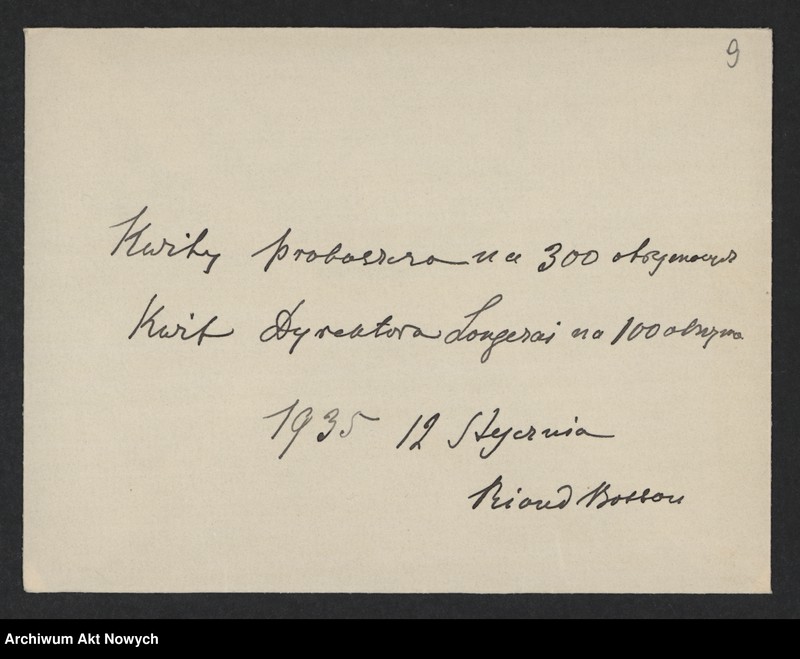 9
Kwity proboszcza na 300 otrzymanych
Kwit Dyrektora Longerai na 100 otrzyma
1935 12 Stycznia
Riond Bosson
Archiwum Akt Nowych